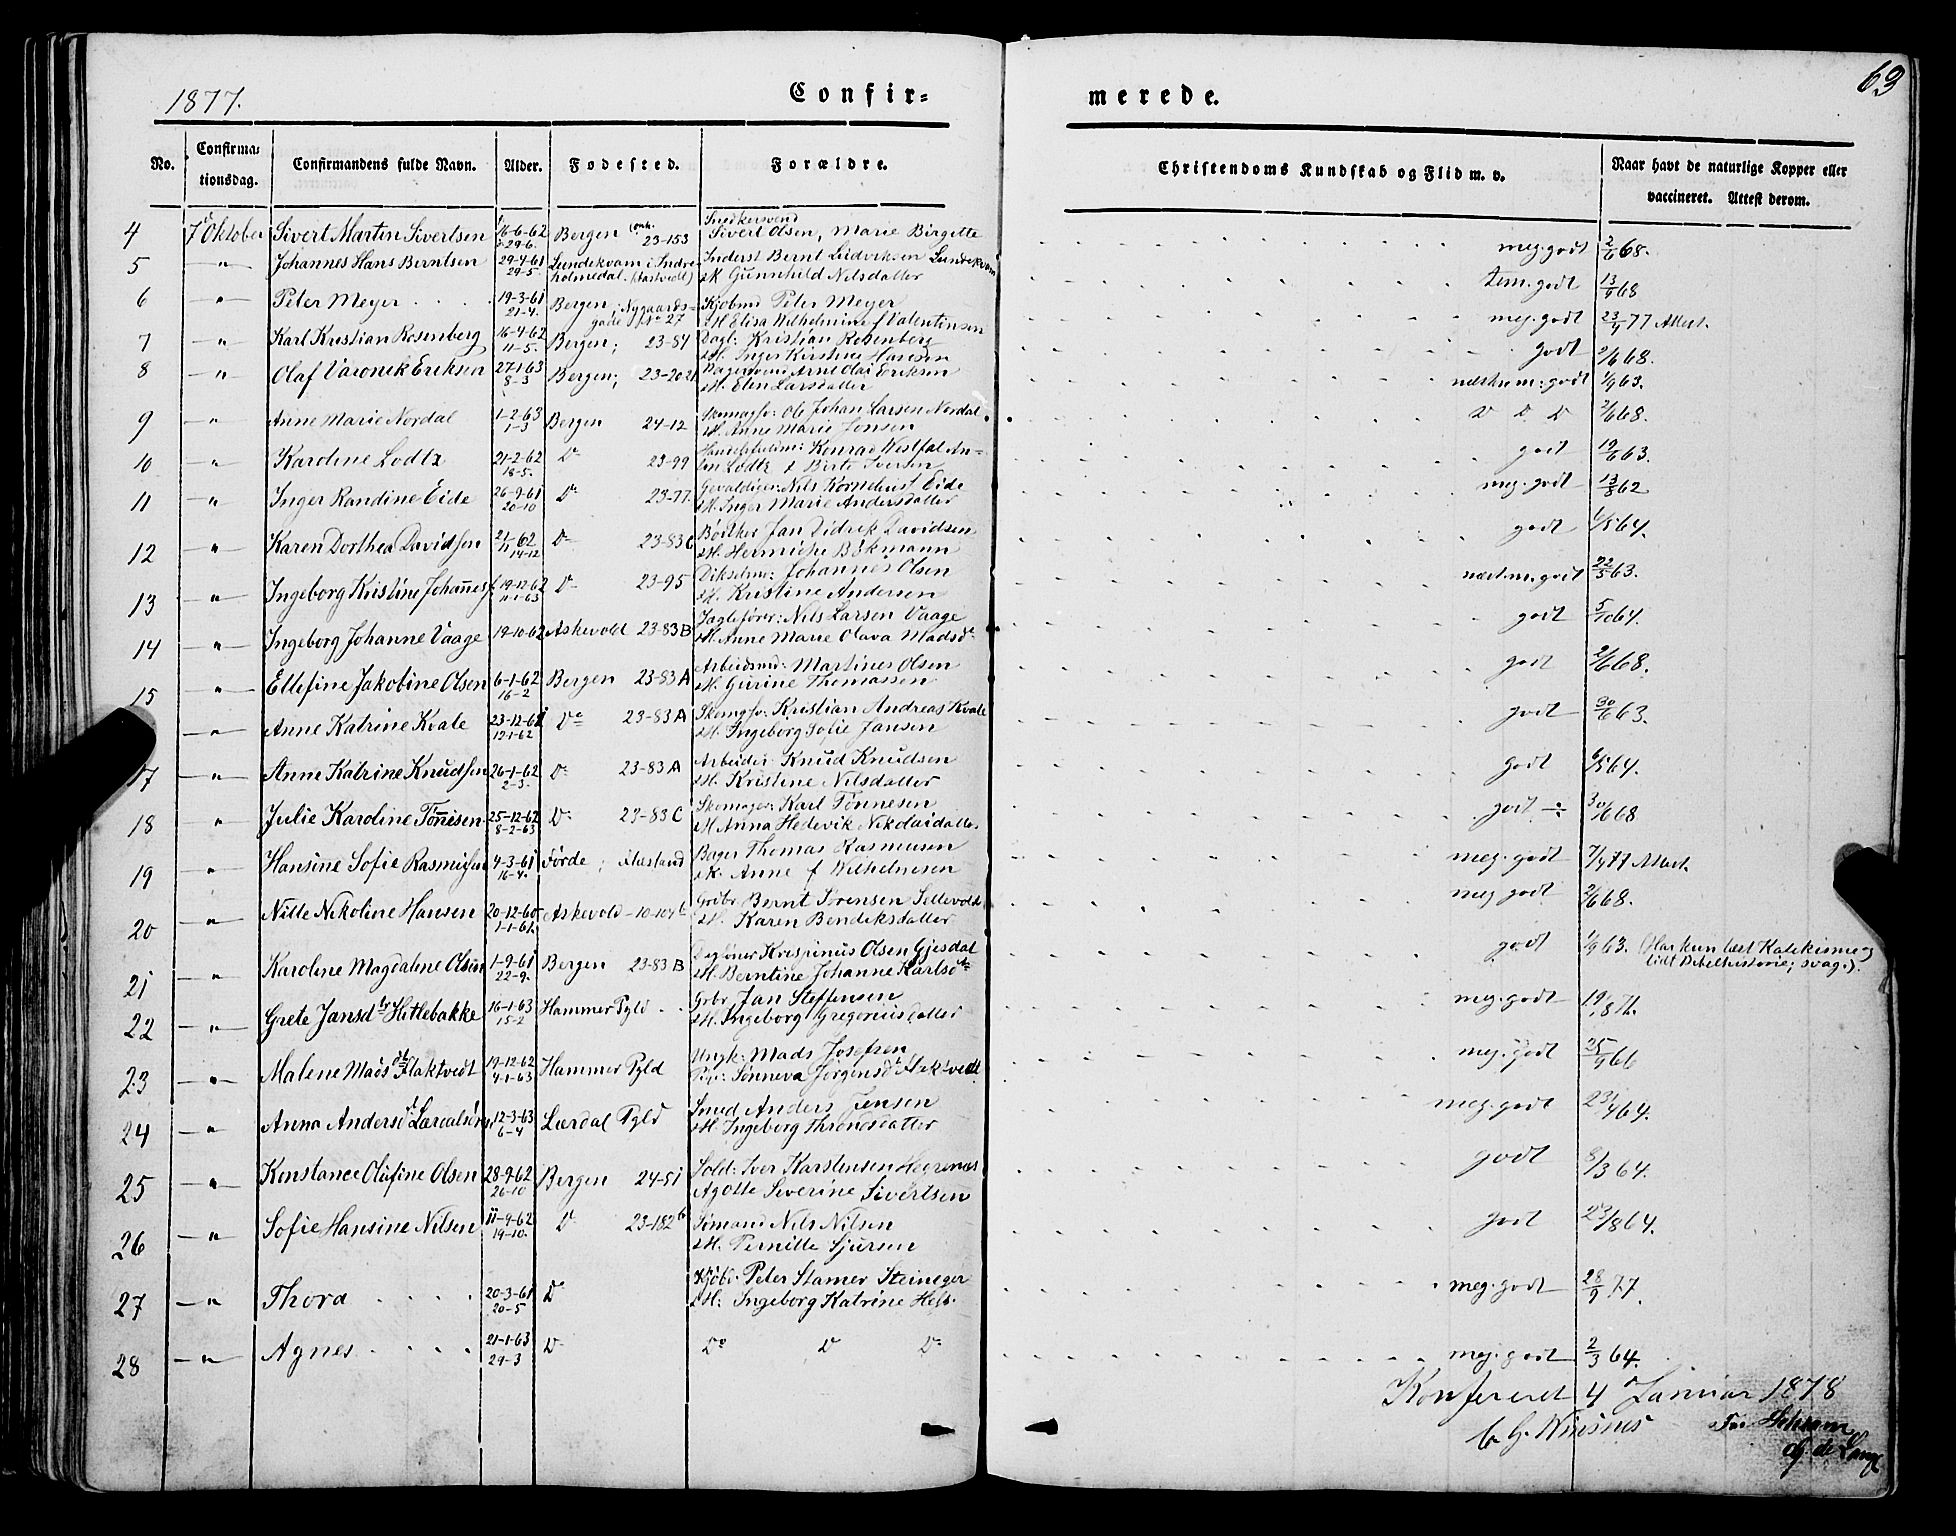 1877.
Confir=
merede.
63
No.
Confirma:
tionsdag.
Confirmandens fulde Navn.
Alder.
Fødested.
Forældre.
Christendoms Kundskab og Flid m. v.
Naar havt de naturlige Kopper eller
vaccineret. Attest derom.
4 7 Oktober Sivert Martin Sivertsen 16-6-62 29-6. Bergen 23-153 Snedkersvend Sivert Olsen, Marie Birgitte meg. godt 2/6 68.
5 -"- Johannes Hans Berntsen 29-4-61 29-5. Lundekvam i Indre holmedal. Inderst Bernt Ludviksen Lundekvam &H. Gunnhild Nilsdatter tem. godt 13/9 68
6 -"- Peter Meyer 19-3-61 21-4. Bergen, Nygaards= gade No 27 Kjøbmd Peter Meyer &H Elisa Wilhelmine f Valentinsen meg. godt 23/4 77 Attest.
7 -"- Karl Kristian Rosenberg 16-4-62 11-5. Bergen; 23-84 Dagl: Kristian Rosenberg &H. Inger Kirstine Hansen godt 2/6 68.
8 -"- Olaf Eriksen 27-1-63 8-3 Bergen; 23-202 Arnt Olai Eriksen &H. Elen Larsdatter næsten m: godt 1/9 63.
9 -"- Anne Marie Nordal 1-2-63 1-3 Bergen 24-12 Skomagsv: Ole Johan Larsen Nordal &H. Anne Marie Jonsen D D D 2/6 68.
10 -"- Karoline Lodtz 21-2-62 18-5. Do 23-99 Konrad Westfal An= ton Lodtz & Birte Iversen godt 19/6 63.
11 -"- Inger Randine Eide 26-9-61 20-10 Do 23-77. Gevaldiger: Nils Kornelius Eide &H. Inger Marie Andersdatter meg. godt 13/8 62
12 -"- Karen Dorthea Davidsen 21/11-62 14-12 Do 23-83C Bødker Jan Didrik Davidsen &H. Henrikke Bøkmann godt 6/5 64.
13 -"- Ingeborg Kristine Johannesf 19-12-62 11-1-63 Do 23-95 Johannes Olsen &H. Kristine Andersen næst. m. godt 22/5 63.
14 -"- Ingeborg Johanne Vaage 19-10-62 Askevold 23-83B Jagtefører: Nils Larsen Vaage &H. Anne Marie Olava Madsdr godt 5/10 64.
15 -"- Ellefine Jakobine Olsen 6-1-62 16-2 Bergen 23-83A Arbeidsmd: Martines Olsen &H. Gurine Thomassen godt 2/6 68.
-"- Anne Katrine Kvale 23-12-61 12-1-62 Do 23-83A Skomgsv: Kristian Andreas Kvale &H. Ingeborg Sofie Jansen godt 30/6 63.
17 -"- Anne Katrine Knudsen 26-1-62 2-3. Do 23-83A Arbeider: Knud Knudsen &H. Kristine Nilsdatter godt 6/5 64.
18 -"- Julie Karoline Tønnesen 25-12-62 8-2-63 Do 23-83C Skomager: Karl Tønnesen &H Anna Hedevik Nikolaidatter godt ÷ 30/6 68
19 -"- Hansine Sofie Rasmusen 4-3-61 16-4. Førde; Flastand Bager Thomas Rasmusen &H. Anne f Wilhelmsen meg. godt 7/4 77 Attest.
20 -"- Nille Nikoline Hansen 20-12-60 1-1-61. Askevold Grbr. Bernt Sørensen Sellevold &H. Karen Bendiksdatter meg godt 2/6 68.
21 -"- Karoline Magdalene Olsen 1-9-61 22-9. Bergen 23-83B Krispinus Olsen Gjesdal &H. Berntine Johanne Karlsdtr godt 1/9 63. (Har kun læst Katekisme og lidt Bibelhistorie; svag.).
22 -"- Grete Jansdtr Hitlebakke 16-1-63 15-2 Hammer Pgld Grbr Jan Steffensen &H. Ingeborg Gregoriusdatter meg. godt
23 -"- Malene Madsdtr Flaktvedt 19-12-62 4-1-63 Hammer Pgld Ungk: Mads Josefsen Pige: Sønneva Jørgensdtr Flaktvedt meg. godt 25/9 66
24 -"- Anna Andersdtr Lærdalsøren 12-3-63 6-4 Lærdal Pgld Smed Anders Jensen &H. Ingeborg Throndsdatter meg. godt
25 -"- Konstance Olufine Olsen 28-9-62 26-10 Bergen 24-51 Sold: Iver Karstensen Hegrenæs Agotte Severine Sivertsen godt 8/3 64.
26 -"- Sofie Hansine Nilsen 11-9-62 19-10. Do 23-182b Sømand Nils Nilsen &H. Pernille Sjursen godt 23/8 64.
27 -"- Thora 20-3-61 20-5 Do Kjøbm. Peter Stamer Steineger &H: Ingeborg Katrine Heft. meg. godt 28/9 77.
28 -"- Agnes 21-1-63 29-3 Do Do Do Do meg. godt 2/3 64.
Konfereret 4 Januar 1878